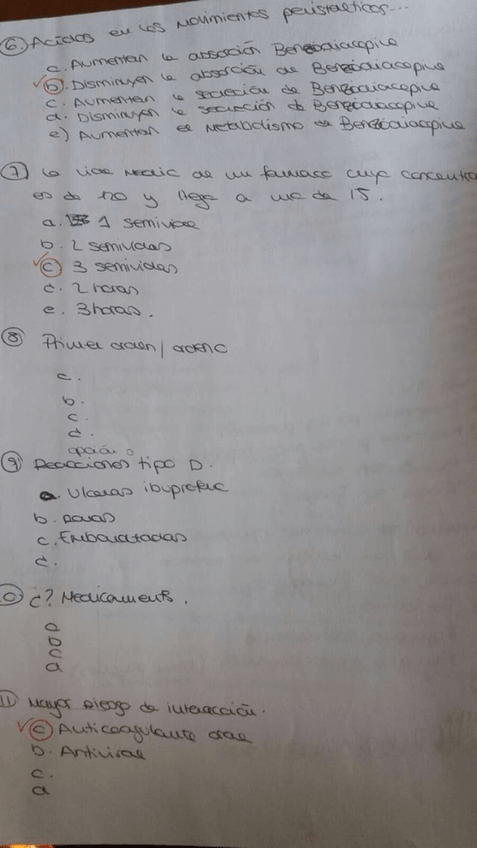 6. Acidos en los movimientos peristalticos...
a. Aumentan la absorción Benzodiacepina
b. Disminuyen la absorción de Benzodiacepina
c. Aumentan la secreción de Benzodiacepina
d. Disminuyen la secreción de Benzodiacepina
e) Aumentan el metabolismo de Benzodiacepina
7 La vida media de un farmaco cuya concentra
es de 120 y llega a una de 15.
a. 1 semivida
b. 2 semividas
c 3 semividas
d. 2 horas
e. 3 horas.
8 Primer orden / orden 0
a.
b.
c.
d.
opción
9 Reacciones tipo D.
a. Ulceras ibuprofeno
b.
c. Embarazadas
d.
10 ¿? Medicamento.
a
b
c
d
11 Mayor riesgo de interacción.
a Anticoagulante oral
b. Antiviral
c.
d